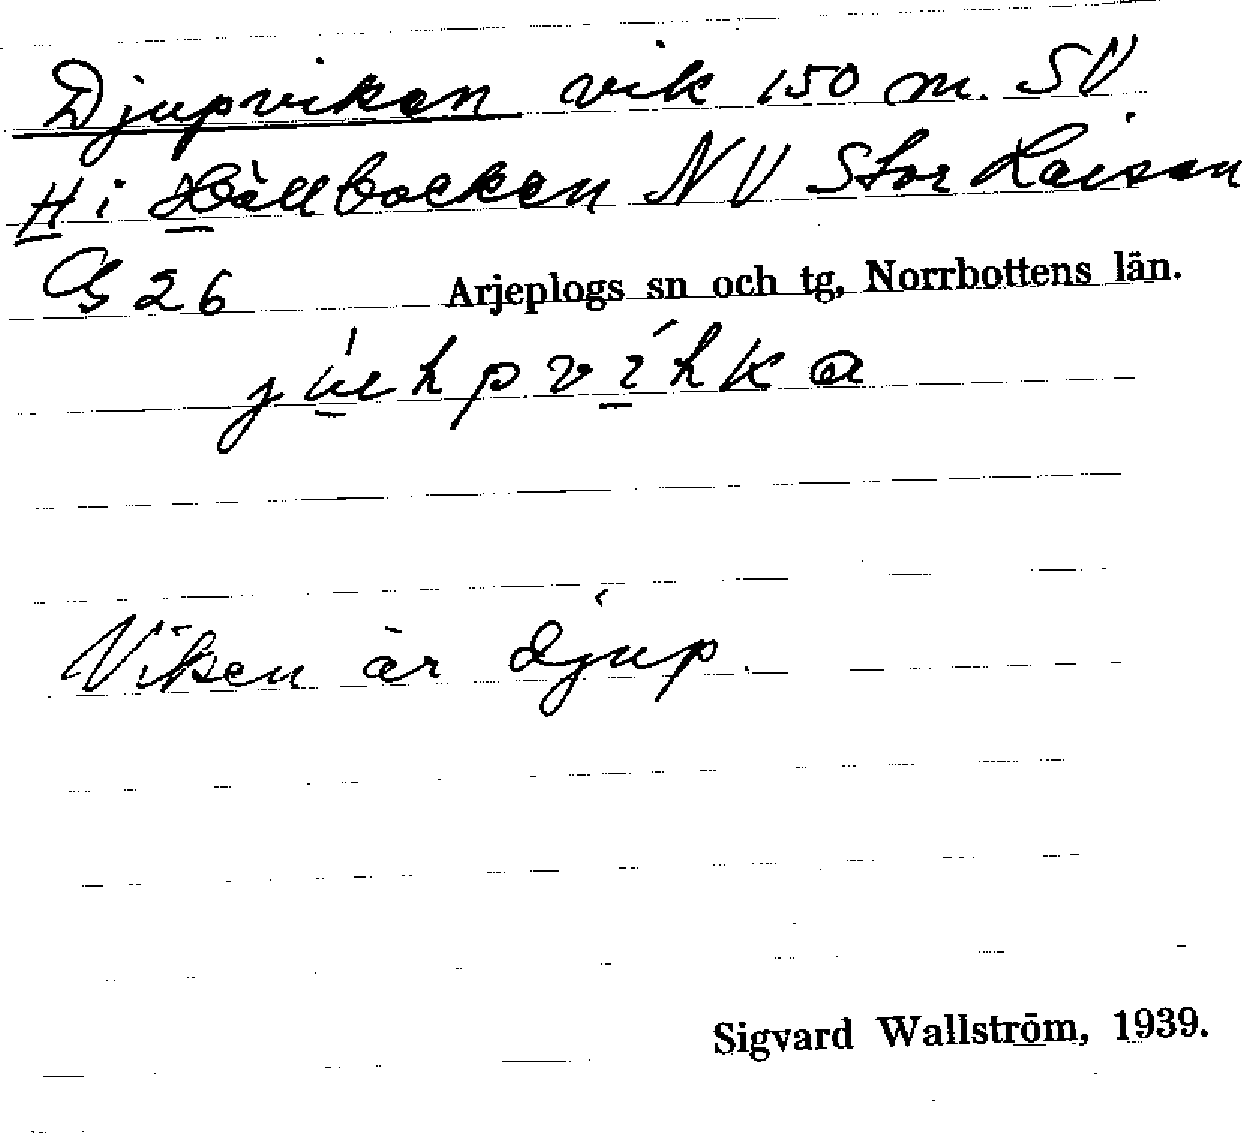 Djupviken vik 150 m. SV
H i Hällbocken NV Stor Laisan
G 26 Arjeplogs sn och tg, Norrbottens län.
Viken är djup.
Sigvard Wallström, 1939.